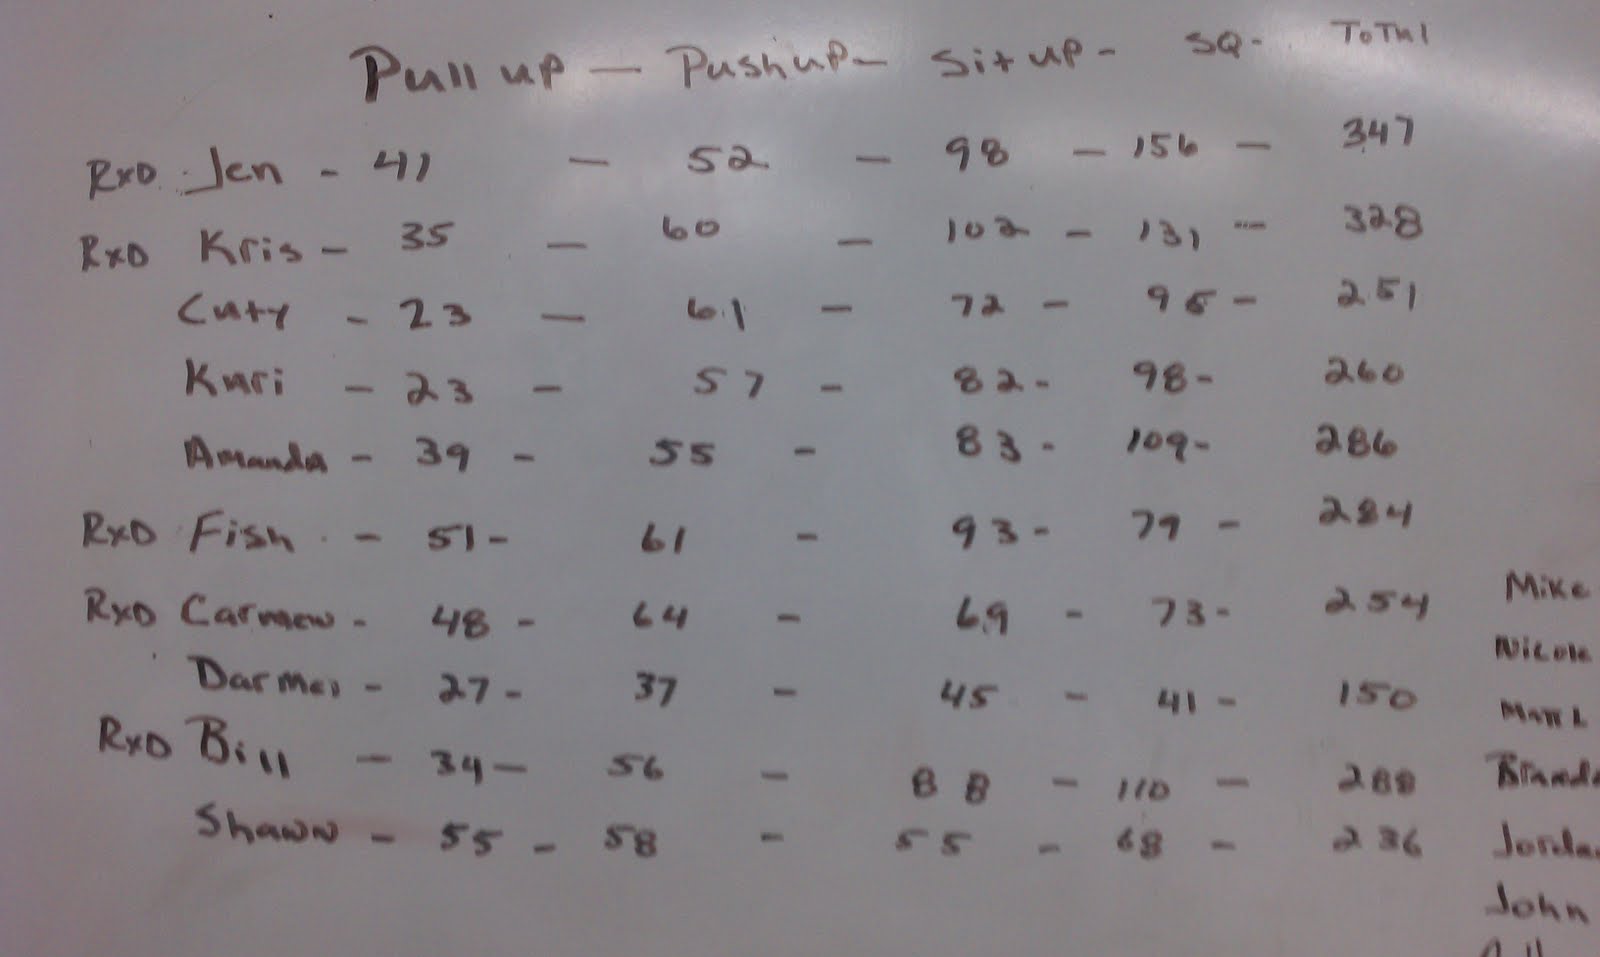 Pull up - Push up - Sit up - SQ - Total
RxD Jen - 41 - 52 - 98 - 156 - 347
RxD Kris - 35 - 60 - 102 - 131 - 328
Caty - 23 - 61 - 72 - 95 - 251
Kari - 23 - 57 - 82 - 98 - 260
Amanda - 39 - 55 - 83 - 109 - 286
RxD Fish - 51 - 61 - 93 - 79 - 284
RxD Carmen - 48 - 64 - 69 - 73 - 254
- 27 - 37 - 45 - 41 - 150
RxD Bill - 34 - 56 - 88 - 110 - 288
Shawn - 55 - 58 - 55 - 68 - 236
Mike
Nicole
Matt L
Brand
Jorda
John